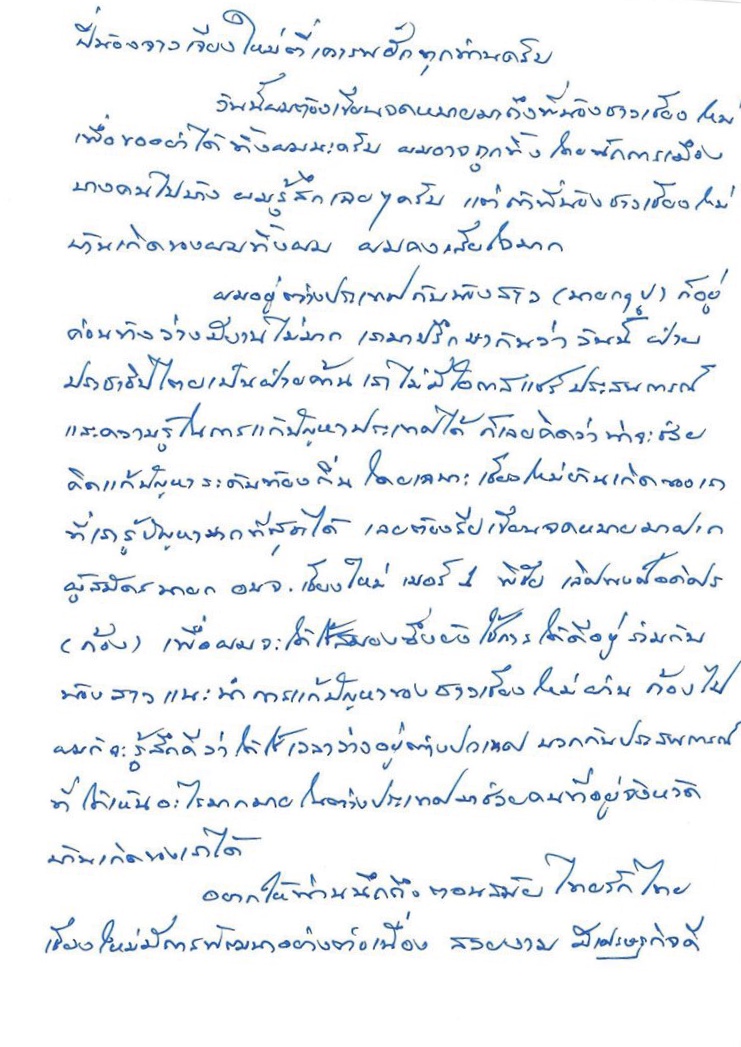 ปี้น้องจาวเจียงใหม่ตี้เคารพฮักทุกท่านครับ
วันนี้ผมต้องเขียนจดหมายมาถึงพี่น้องชาวเชียงใหม่
เพื่อขออย่าได้ทิ้งผมนะครับ ผมอาจถูกทิ้งโดยนักการเมือง
บางคนไปบ้าง ผมรู้สึกเฉยๆครับ แต่ถ้าพี่น้องชาวเชียงใหม่
บ้านเกิดของผมทิ้งผม ผมคงเสียใจมาก
ผมอยู่ต่างประเทศกับน้องสาว (นายกฯปู) ก็อยู่
ค่อนข้างว่างมีงานไม่มาก เรามาปรึกษากันว่า วันนี้ ฝ่าย
ประชาธิปไตยเป็นฝ่ายค้าน เราไม่มีโอกาสแชร์ประสบการณ์
และความรู้ในการแก้ปัญหาประเทศได้ ก็เลยคิดว่าน่าจะช่วย
คิดแก้ปัญหาระดับท้องถิ่น โดยเฉพาะเชียงใหม่บ้านเกิดของเรา
ที่เรารู้ปัญหามากที่สุดได้ เลยต้องรีบเขียนจดหมายมาฝาก
ผู้สมัครนายก อบจ.เชียงใหม่ เบอร์ 1 พิชัย เลิศพงศ์อดิศร
(ก้อง) เพื่อผมจะได้ใช้สมองซึ่งยังใช้การได้ดีอยู่ ร่วมกับ
น้องสาวแนะนำการแก้ปัญหาของชาวเชียงใหม่ผ่าน ก้องไป
ผมก็จะรู้สึกดีว่าได้ใช้เวลาว่างอยู่ต่างประเทศ บวกกับประสบการณ์
ที่ได้เห็นอะไรมากมายในต่างประเทศมาช่วยคนที่อยู่จังหวัด
บ้านเกิดของเราได้
อยากให้ท่านนึกถึงตอนสมัยไทยรักไทย
เชียงใหม่มีการพัฒนาอย่างต่อเนื่อง สวยงาม มีเศรษฐกิจดี